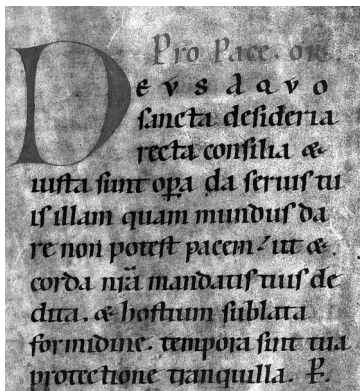 Pro Pace. or̄.
DEUS A QUO
sancta desideria
recta consilia &
iusta sunt op̄a da seruis tu
is illam quam mundus da
re non potest pacem. ut &
corda nr̄a mandatis tuis de
dita. & hostium sublata
formidine. tempora sint tua
protectione tranquilla. P.